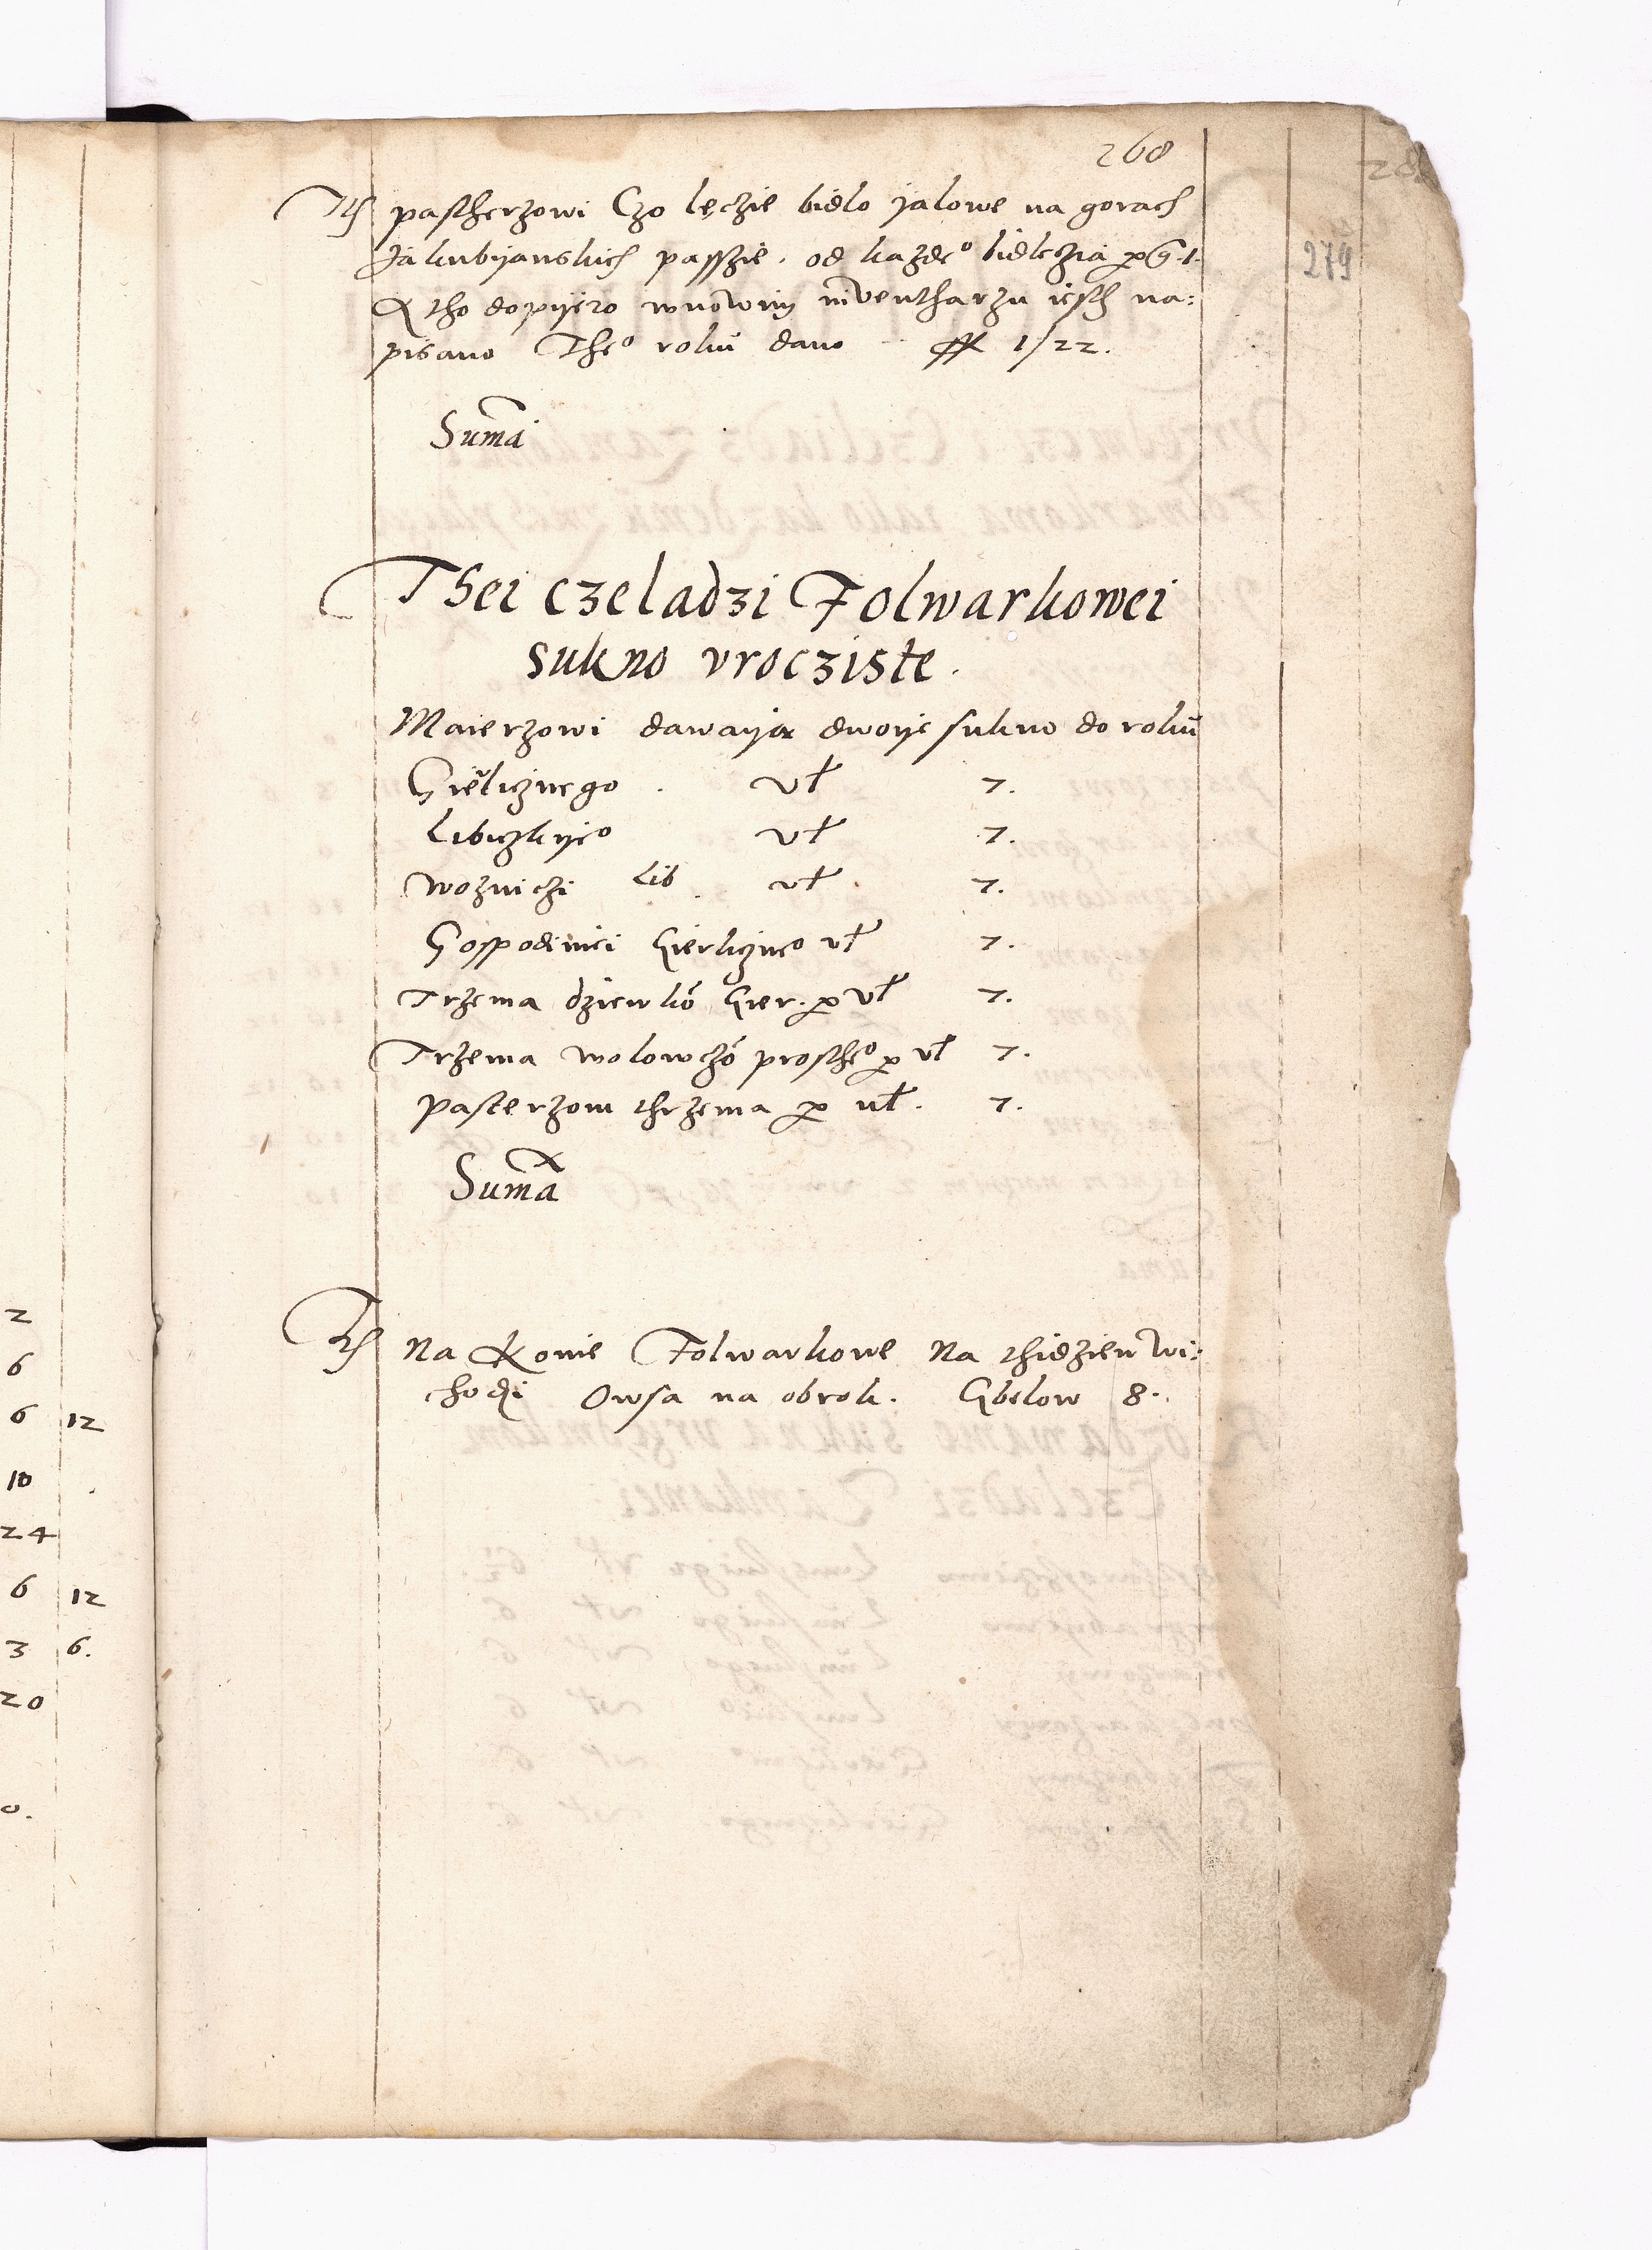 268
279
Ith pastherzowi Czo lęczie bidlo jalowe na gorach
Jakubijanskich passzie. od każde° bidlęczia p g. 1.
A tho dopijero wnowim inventharzu iesth na:
pisano The° roku dano ff 1/22.
Suma
Thei czeladzi Folwarkowei
sukno vrocziste.
Maierzowi dawaija dwoije sukno do roku
Gierlicznego. vł 7.
Libiczkije° vł 7.
Woznichi Lib. vł. 7.
Gospodinei Gierliczne° vł 7.
Trzema dziewkō Gier. p vł 7.
Trzema wolowczō prosthe° p vł 7.
Pasterzom thrzema p vł. 7.
Sumā
Ith Na Konie Folwarkowe Na thidzien wi:
chodzi Owsa na obrok. Gbelow 8.
2
6
6 12
10 .
24
6 12
3 6.
20
0.